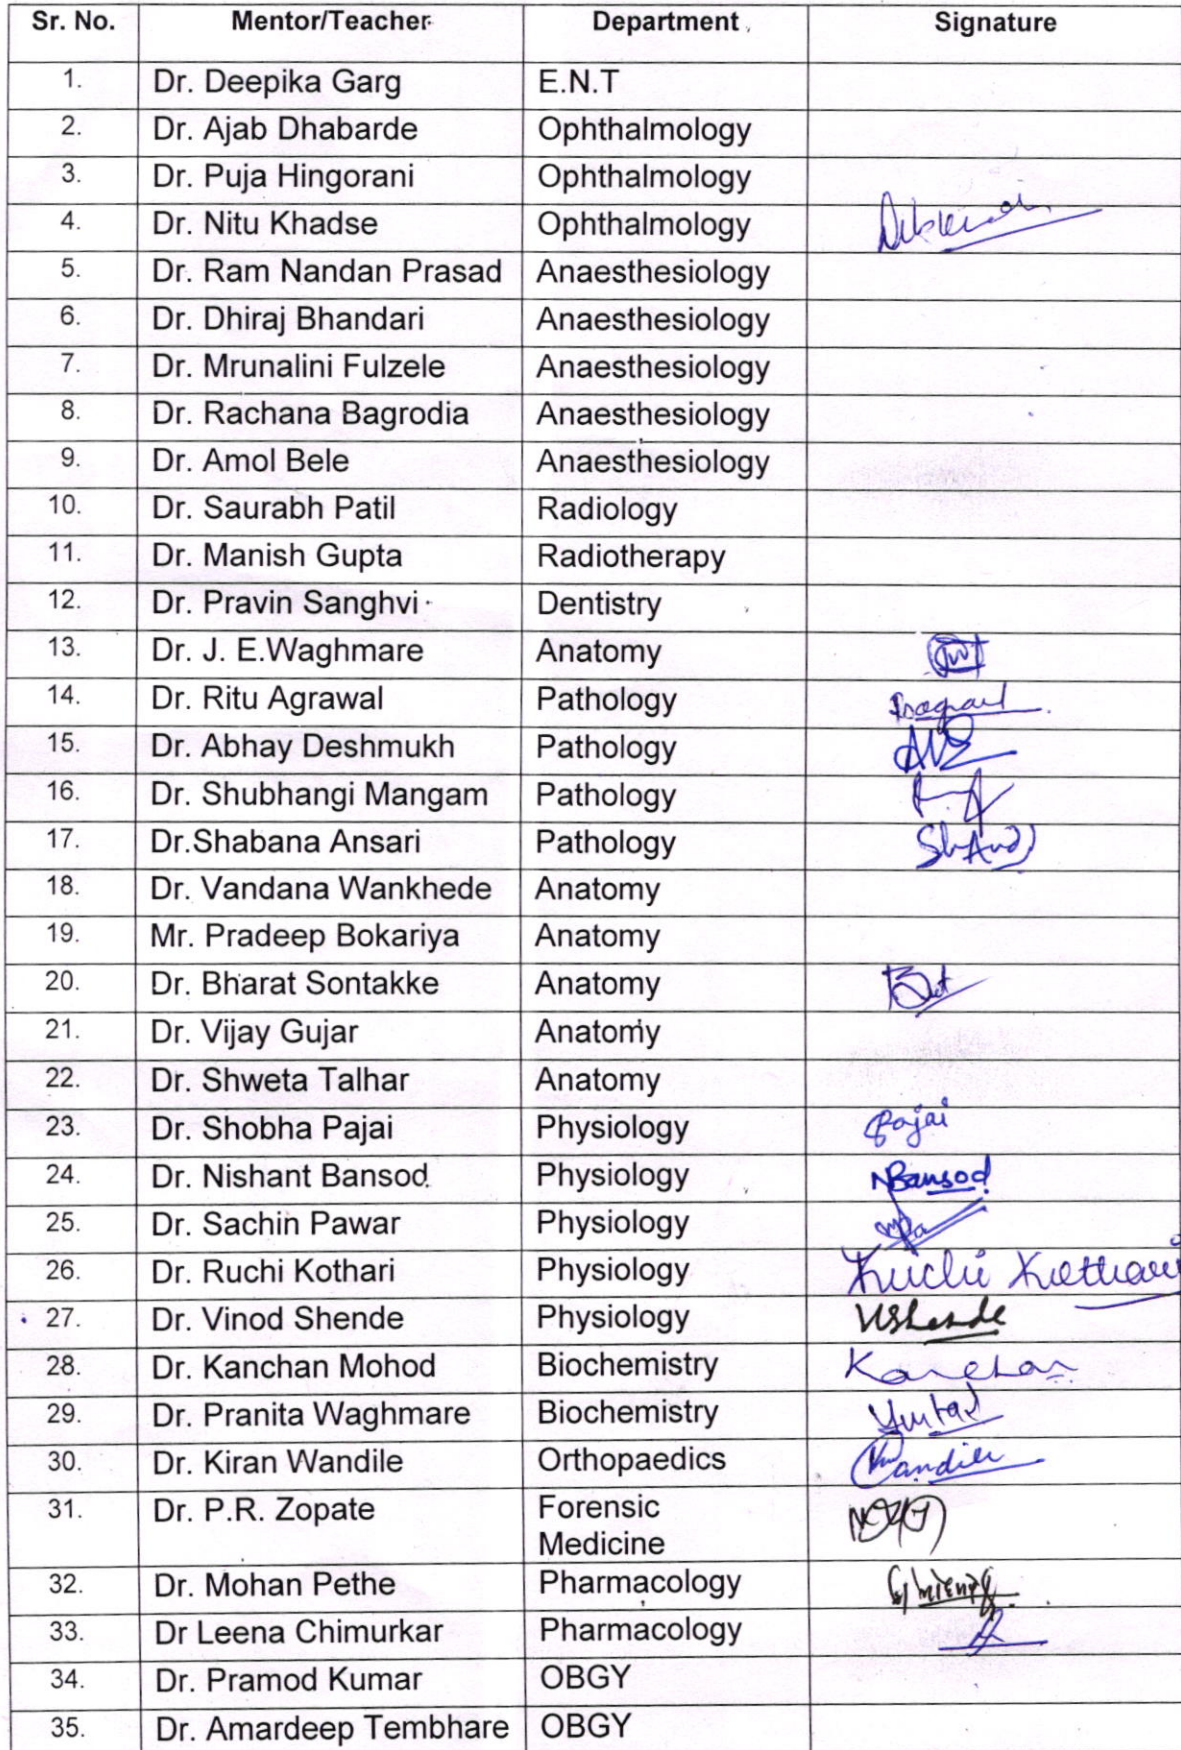 Sr. No. Mentor/Teacher Department Signature
1. Dr. Deepika Garg E.N.T
2. Dr. Ajab Dhabarde Ophthalmology
3. Dr. Puja Hingorani Ophthalmology
4. Dr. Nitu Khadse Ophthalmology
5. Dr. Ram Nandan Prasad Anaesthesiology
6. Dr. Dhiraj Bhandari Anaesthesiology
7. Dr. Mrunalini Fulzele Anaesthesiology
8. Dr. Rachana Bagrodia Anaesthesiology
9. Dr. Amol Bele Anaesthesiology
10. Dr. Saurabh Patil Radiology
11. Dr. Manish Gupta Radiotherapy
12. Dr. Pravin Sanghvi Dentistry
13. Dr. J. E.Waghmare Anatomy
14. Dr. Ritu Agrawal Pathology
15. Dr. Abhay Deshmukh Pathology
16. Dr. Shubhangi Mangam Pathology
17. Dr.Shabana Ansari Pathology
18. Dr. Vandana Wankhede Anatomy
19. Mr. Pradeep Bokariya Anatomy
20. Dr. Bharat Sontakke Anatomy
21. Dr. Vijay Gujar Anatomy
22. Dr. Shweta Talhar Anatomy
23. Dr. Shobha Pajai Physiology Pajai
24. Dr. Nishant Bansod Physiology NBansod
25. Dr. Sachin Pawar Physiology
26. Dr. Ruchi Kothari Physiology Ruchi Kothari
27. Dr. Vinod Shende Physiology VShende
28. Dr. Kanchan Mohod Biochemistry Kanchan
29. Dr. Pranita Waghmare Biochemistry
30. Dr. Kiran Wandile Orthopaedics
31. Dr. P.R. Zopate Forensic
Medicine
32. Dr. Mohan Pethe Pharmacology
33. Dr Leena Chimurkar Pharmacology
34. Dr. Pramod Kumar OBGY
35. Dr. Amardeep Tembhare OBGY